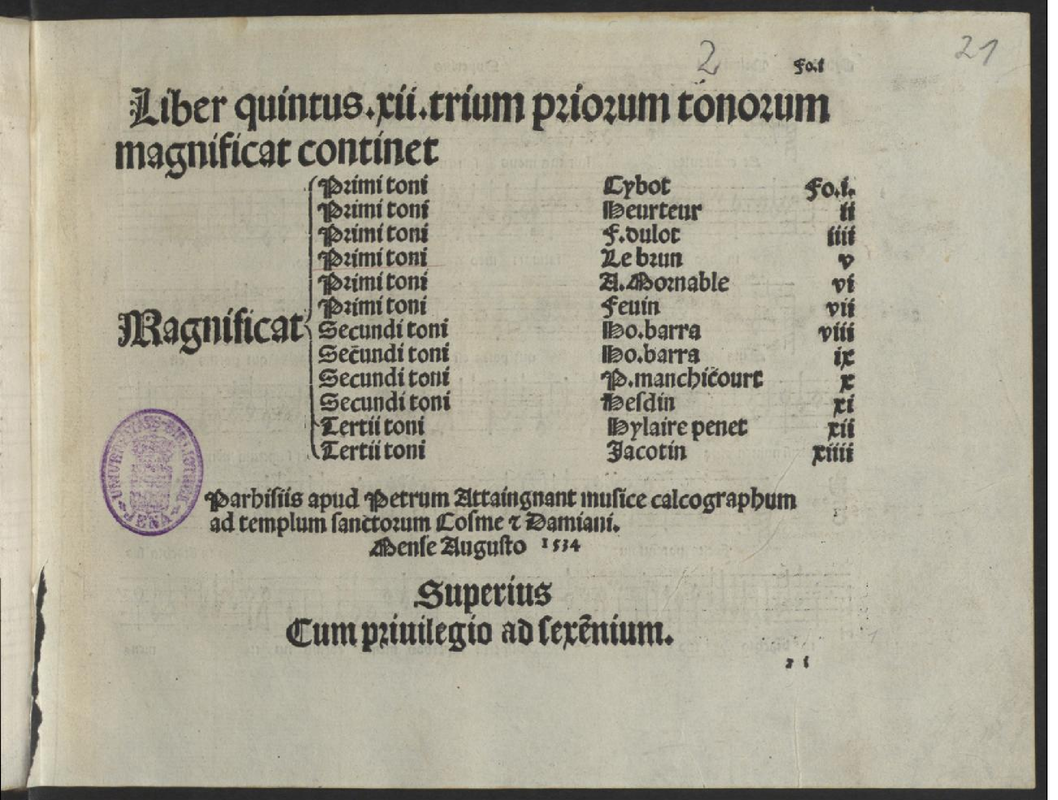 2 Fo.i 21
Liber quintus.xii.trium priorum tonorum
magnificat continet
Primi toni Cybot Fo.i.
Primi toni Heurteur ii
Primi toni F.dulot iiii
Primi toni Le brun v
Primi toni A.Mornable vi
Primi toni Feuin vii
Magnificat
Secundi toni Ho.barra viii
Secundi toni Ho.barra ix
Secundi toni P.manchicourt x
Secundi toni Hesdin xi
Tertii toni Hylaire penet xii
Tertii toni Jacotin xiiii
Parhisiis apud Petrum Attaingnant musice calcographum
ad templum sanctorum Cosme ⁊ Damiani.
Mense Augusto 1534
Superius
Cum priuilegio ad sexēnium.
JENA